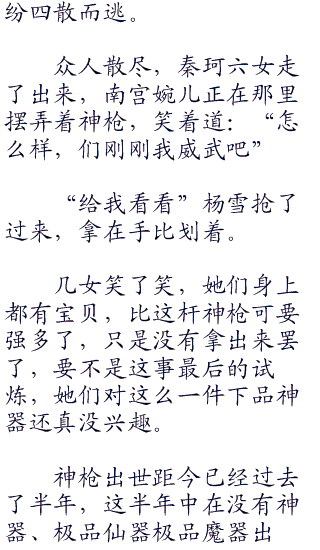 纷四散而逃。
众人散尽，秦珂六女走
了出来，南宫婉儿正在那里
摆弄着神枪，笑着道：“怎
么样，们刚刚我威武吧”
“给我看看”杨雪抢了
过来，拿在手比划着。
几女笑了笑，她们身上
都有宝贝，比这杆神枪可要
强多了，只是没有拿出来罢
了，要不是这事最后的试
炼，她们对这么一件下品神
器还真没兴趣。
神枪出世距今已经过去
了半年，这半年中在没有神
器、极品仙器极品魔器出